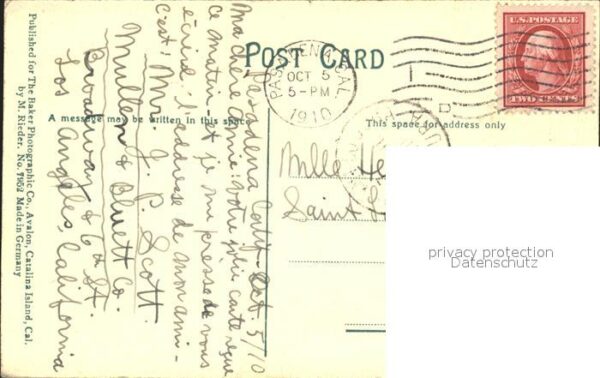 POST CARD
A message may be written in this space
This space for address only
Pasadena Calif. Oct. 5/10
Ma chère amie! Votre jolie carte reçue
ce matin et je m'empresse de vous
écrire l'adresse de mon ami-
c'est: Mr. J. P. Scott.
Mullen & Bluett Co.
Broadway & 6th St.
Los Angeles, California
Published for The Baker Photographic Co., Avalon, Catalina Island, Cal.
by M. Rieder. No. Made in Germany
PASADENA, CAL.
OCT 5
5-PM
1910
U.S. POSTAGE
TWO CENTS
Mlle He
Saint
privacy protection
Datenschutz